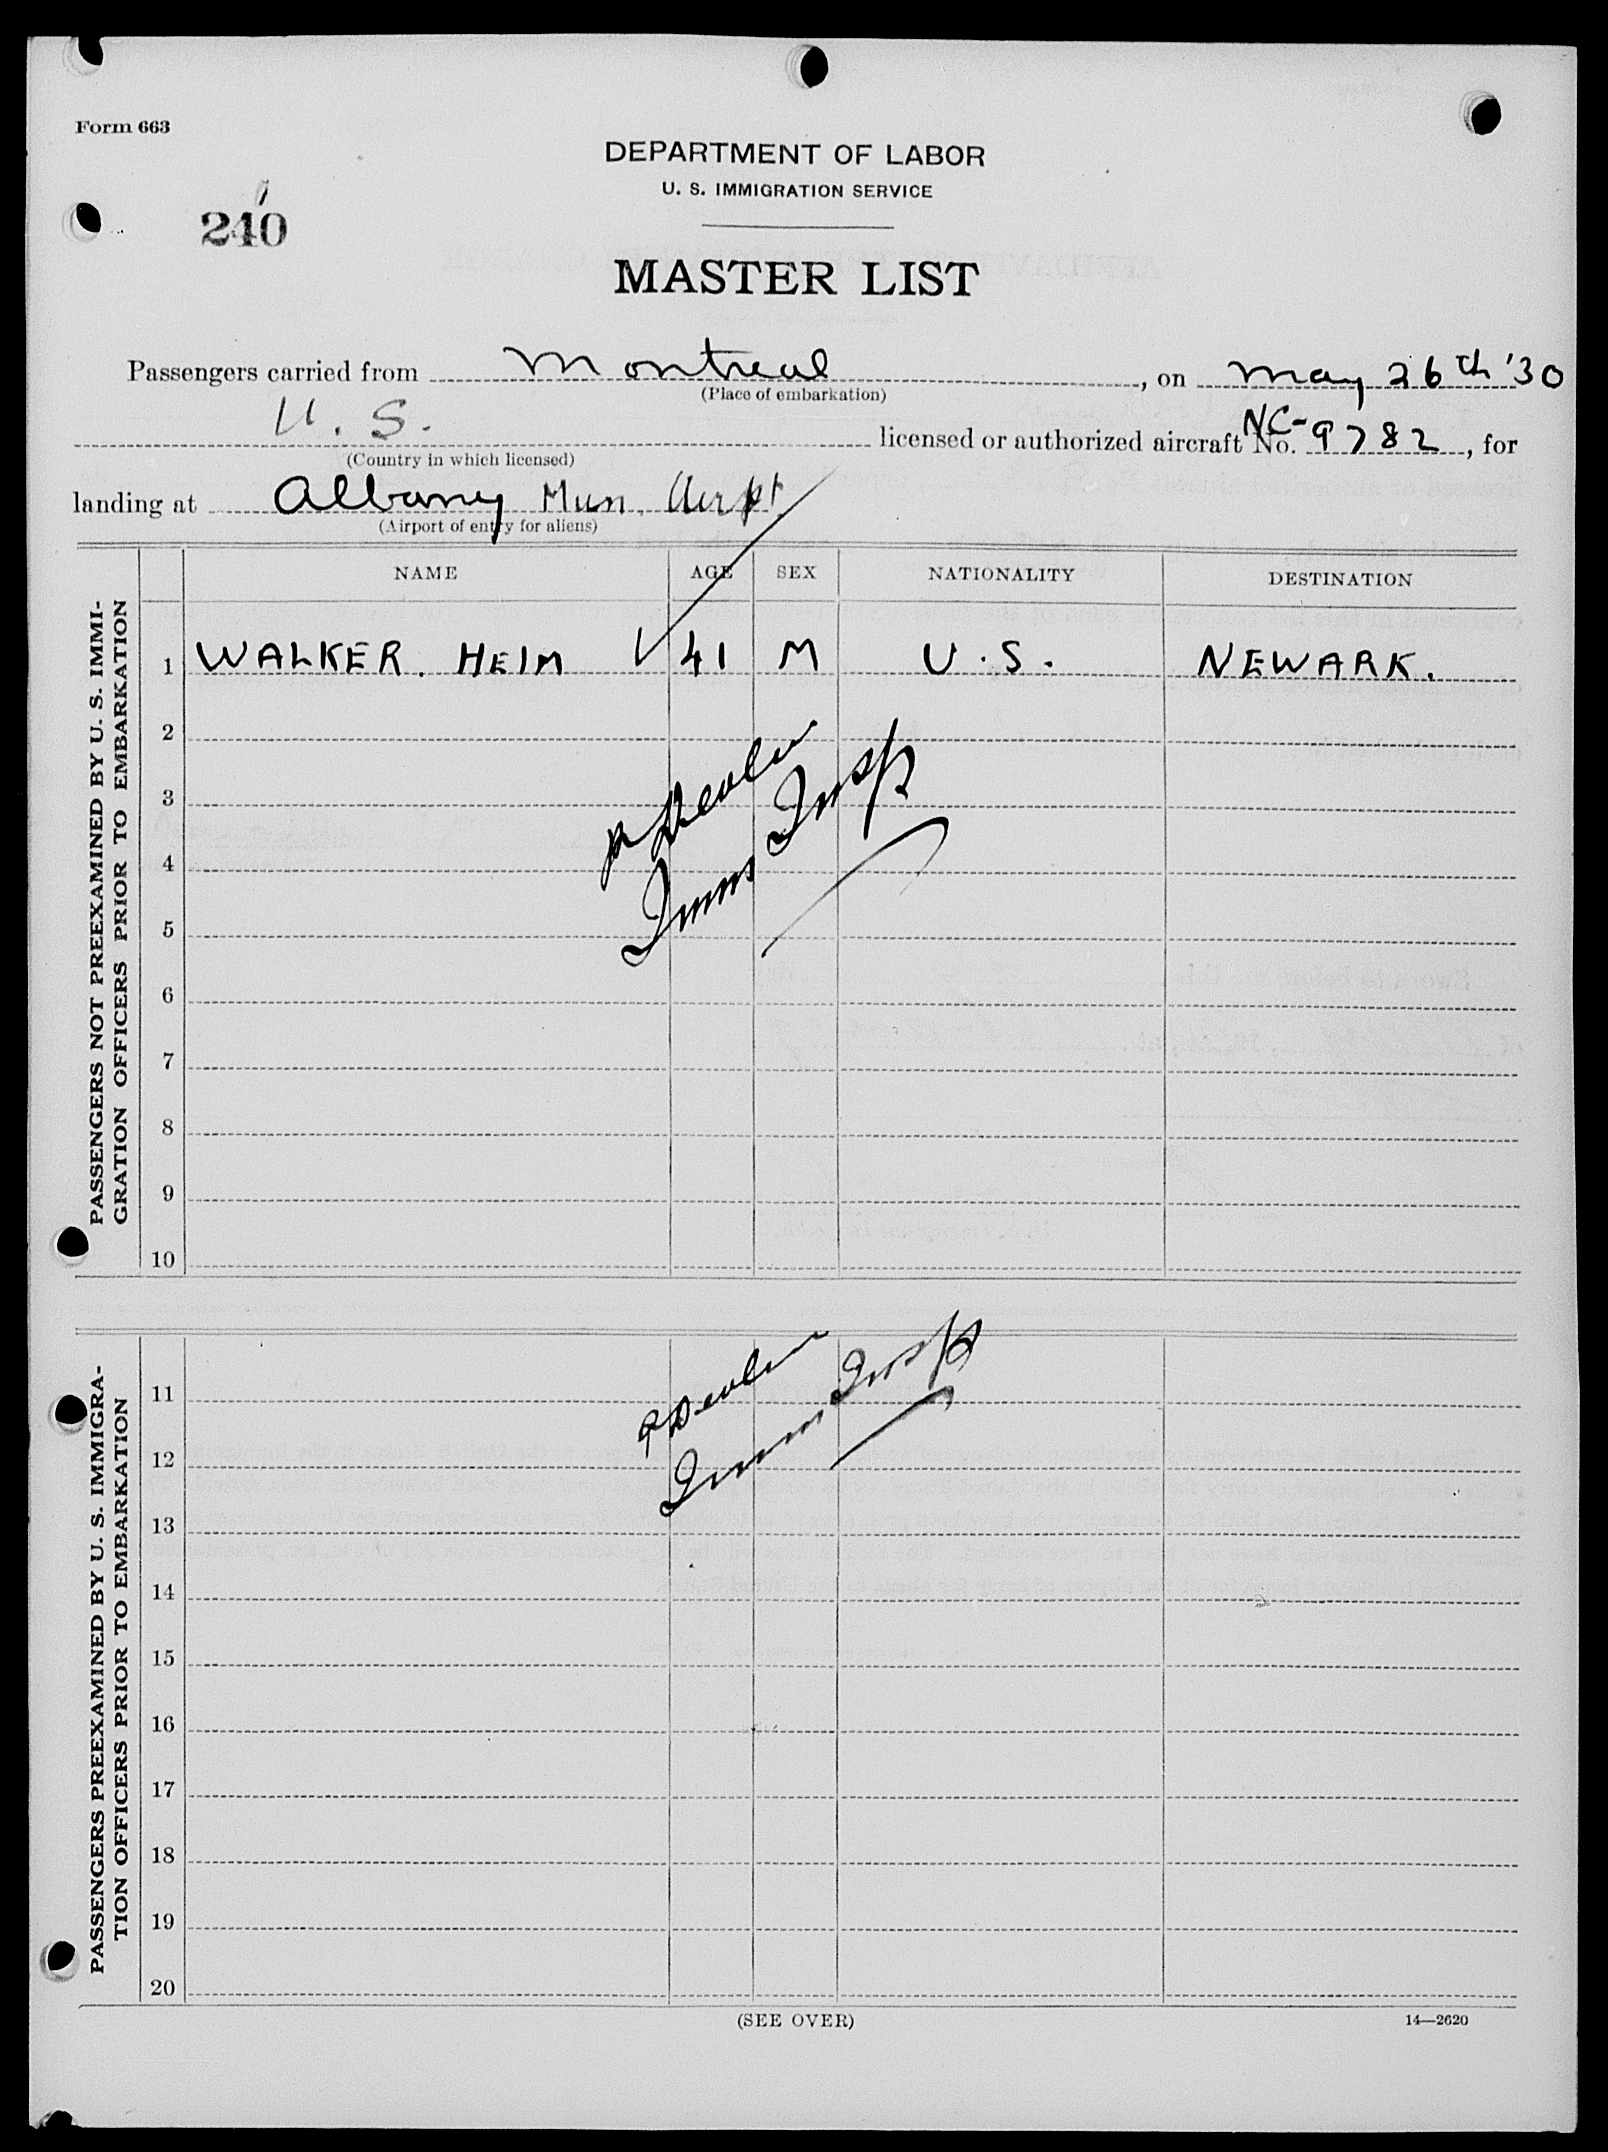 Form 663
DEPARTMENT OF LABOR
U. S. IMMIGRATION SERVICE
240
MASTER LIST
Passengers carried from Montreal, on May 26th '30
(Place of embarkation)
U. S. licensed or authorized aircraft No. NC-9782, for
(Country in which licensed)
landing at Albany Mun. Airpt.
(Airport of entry for aliens)
NAME AGE SEX NATIONALITY DESTINATION
PASSENGERS NOT PREEXAMINED BY U. S. IMMI-
GRATION OFFICERS PRIOR TO EMBARKATION
1 WALKER. HEIM 41 M U.S. NEWARK.
2
3
4
5
6
7
8
9
10
Devlin
Imm Insp
PASSENGERS PREEXAMINED BY U. S. IMMIGRA-
TION OFFICERS PRIOR TO EMBARKATION
11
12
13
14
15
16
17
18
19
20
Devlin
Imm Insp
(SEE OVER)
14—2620